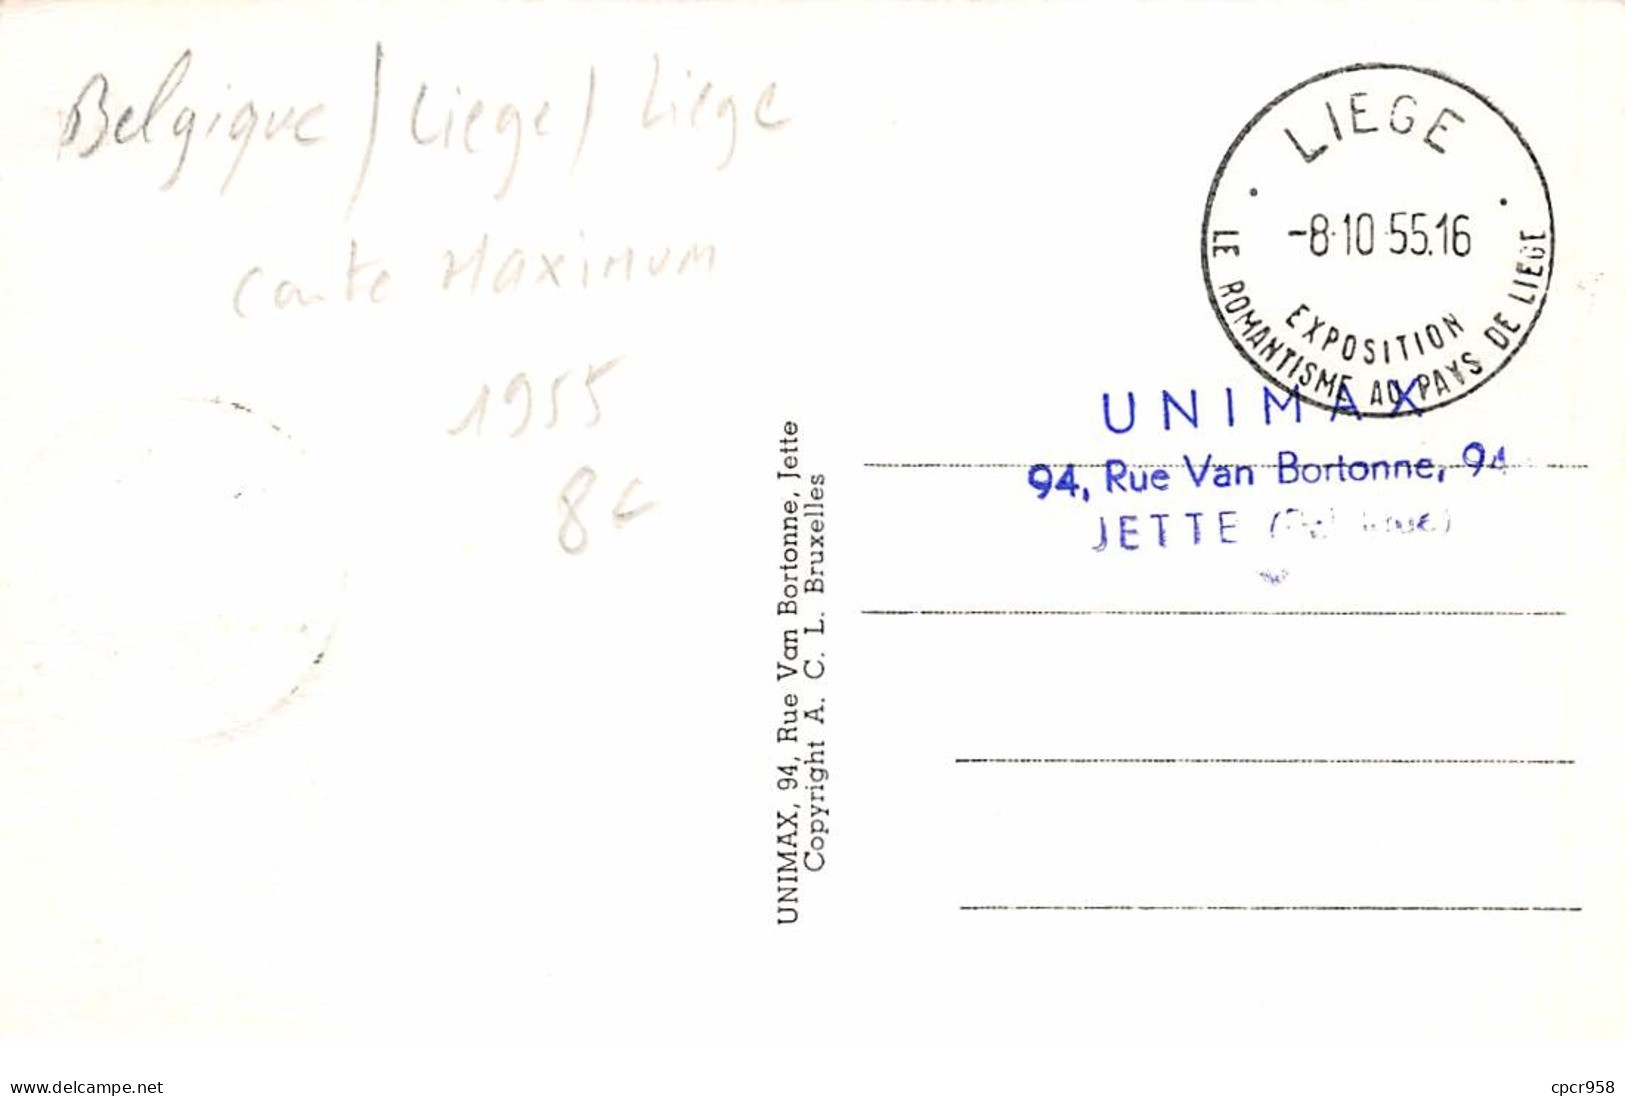 Belgique / Liege / Liege
Carte Maximum
1955
8€
UNIMAX, 94, Rue Van Bortonne, Jette
Copyright A. C. L. Bruxelles
LIEGE
-8·10 55.16
EXPOSITION
LE ROMANTISME AU PAYS DE LIEGE
UNIMAX
94, Rue Van Bortonne, 94
JETTE
delcampe.net
cpcr958